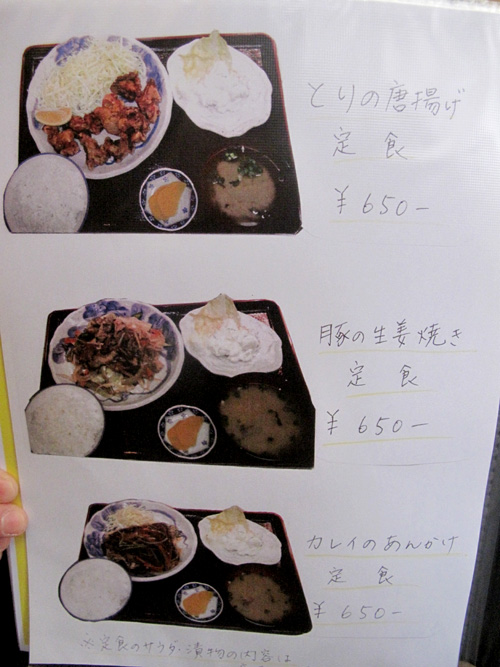 とりの唐揚げ
定食
¥650-
豚の生姜焼き
定食
¥650-
カレイのあんかけ
定食
¥650-
※定食のサラダ・漬物の内容は